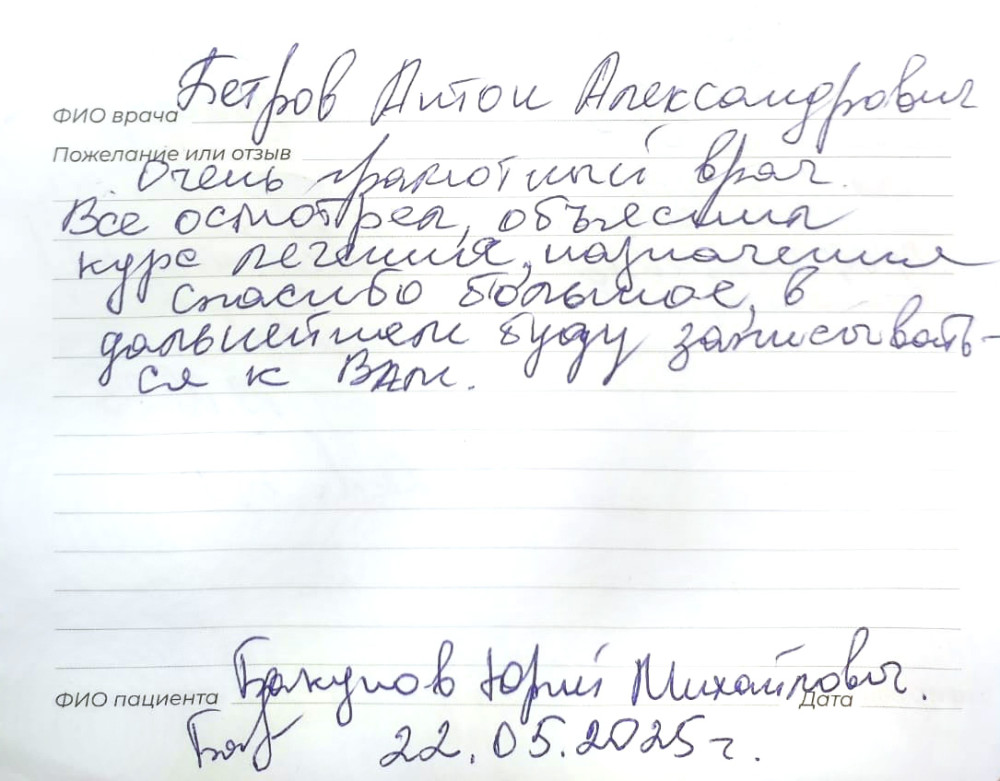 ФИО врача Петров Антон Александрович
Пожелание или отзыв
Очень грамотный врач.
Все осмотрел, объяснил
курс лечения, назначения
спасибо большое, в
дальнейшем буду записывать-
ся к Вам.
ФИО пациента Бакунов Юрий Михайлович.
Дата
22.05.2025 г.